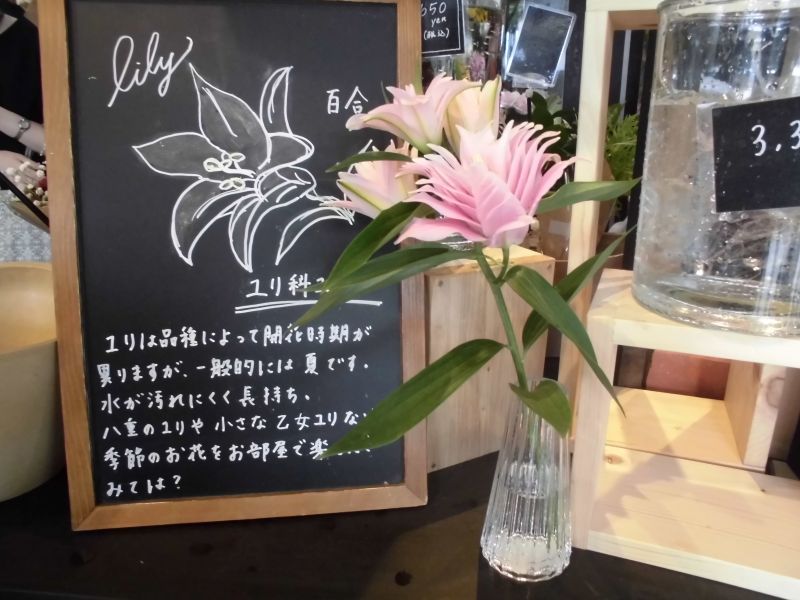 lily
百合
ユリ科
ユリは品種によって開花時期が
異りますが、一般的には夏です。
水が汚れにくく長持ち。
八重のユリや小さな乙女ユリな
季節のお花をお部屋で楽
みては？
650
yen
(税込)
3.3